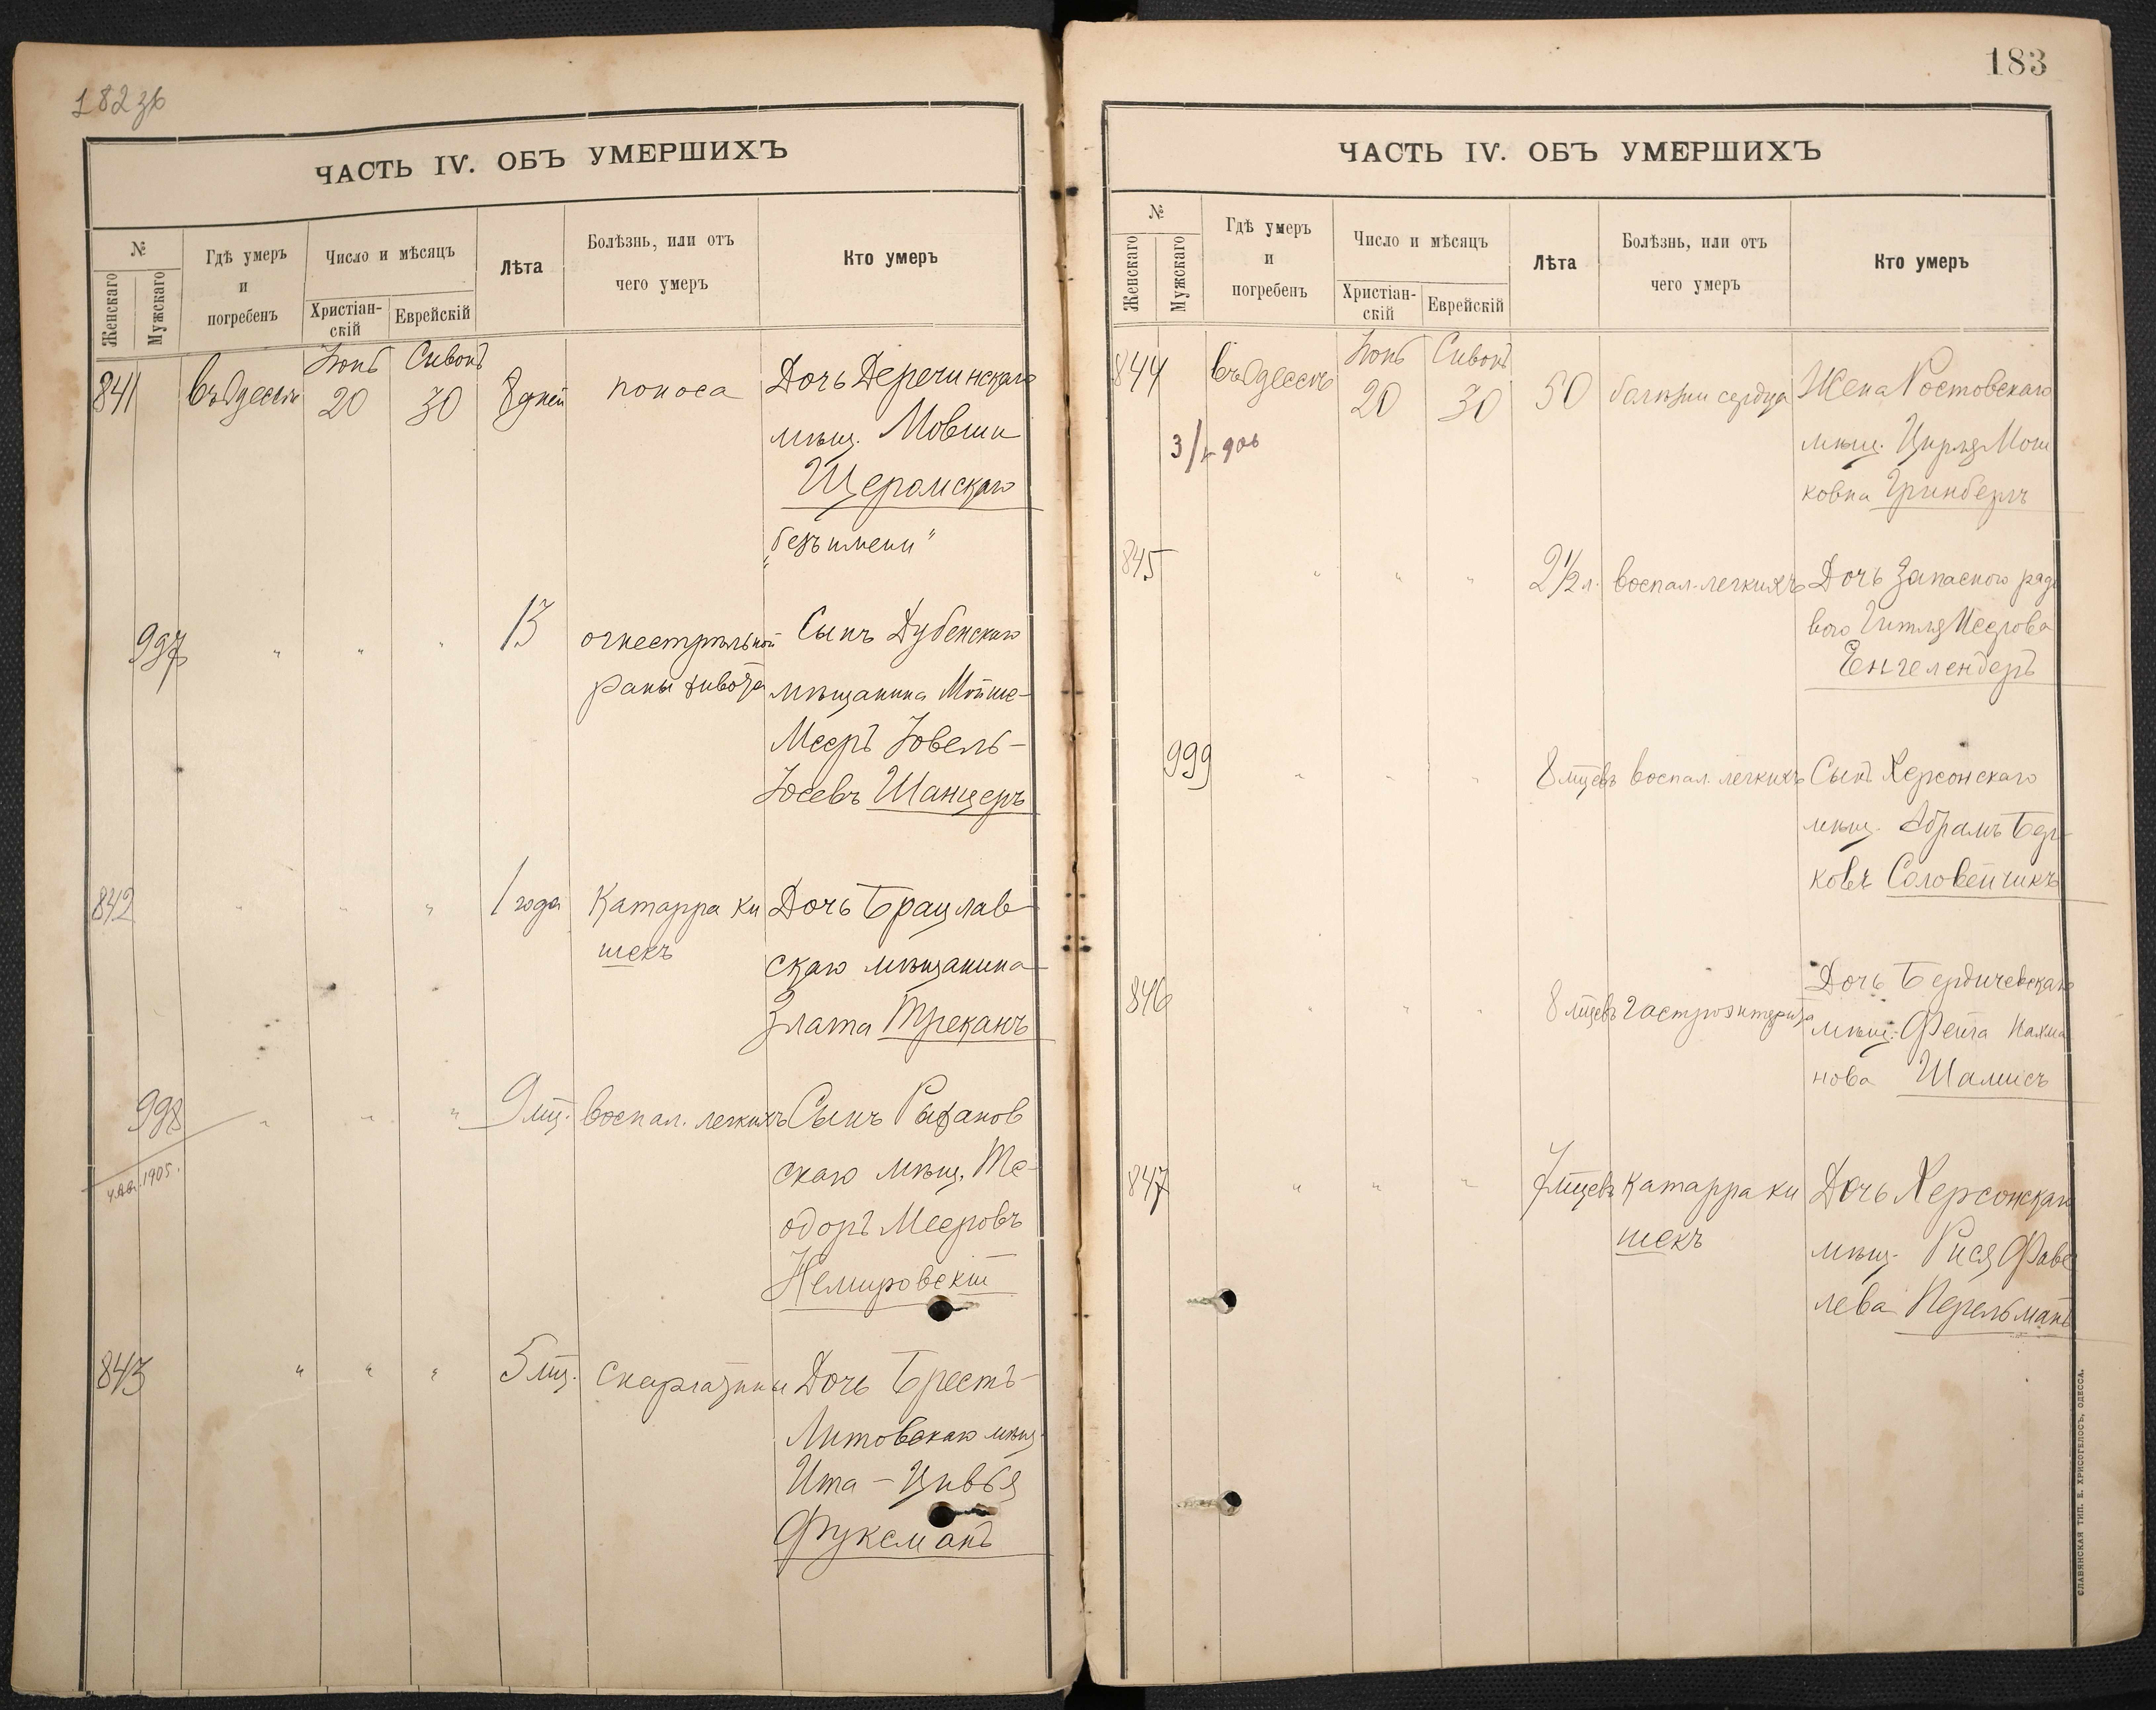 182 зв
ЧАСТЬ IV. ОБЪ УМЕРШИХЪ
№
Женскаго
Мужскаго
Гдѣ умеръ
и
погребенъ
Число и мѣсяцъ
Христіан-
скій
Еврейскій
Лѣта
Болѣзнь, или отъ
чего умеръ
Кто умеръ
841 въ Одессѣ Іюнь 20 Сивонъ 30 8 дней поноса Дочь Деречинскаго
мѣщ. Мовши
Щеромскаго
„безъ имени"
997 " " " 13 огнестрѣльной Сынъ Дубенскаго
раны живота мѣщанина Мойше-
Мееръ Іовель-
Іосевъ Шанцеръ
842 " " " 1 года Катарра ки Дочь Брацлав
шекъ скаго мѣщанина
Злата Треканъ
998 " " " 9 мц. воспал. легкихъ Сынъ
4 Ав. 1905. скаго мѣщ. Те-
одоръ Мееровъ
Немировскій
843 " " " 5 мц. скарлатины Дочь Брестъ-
Литовскаго мѣщ.
Ита-Цивья
Фуксманъ
183
ЧАСТЬ IV. ОБЪ УМЕРШИХЪ
№
Женскаго
Мужскаго
Гдѣ умеръ
и
погребенъ
Число и мѣсяцъ
Христіан-
скій
Еврейскій
Лѣта
Болѣзнь, или отъ
чего умеръ
Кто умеръ
844 въ Одессѣ Іюнь 20 Сивонъ 30 50 болѣзни сердца Жена Ростовскаго
мѣщ. Цирля Мош
ковна Гринбергъ
845 " " " 2 1/2 л. воспал. легкихъ Дочь Запаснаго рядо
вого Гитля Меерова
Енгелендеръ
999 " " " 8 мцевъ воспал. легкихъ Сынъ Херсонскаго
мѣщ. Абрамъ Бер-
ковъ Соловейчикъ
846 " " " 8 мцевъ гастроэнтерита Дочь Бердичевскаго
мѣщ. Фейга Нахма
нова Шамисъ
847 " " " 7 мцевъ катарра ки Дочь Херсонскаго
шекъ мѣщ. Рися Фаве
лева Перельманъ
СЛАВЯНСКАЯ ТИП. Е. ХРИСОГЕЛОСЪ, ОДЕССА.